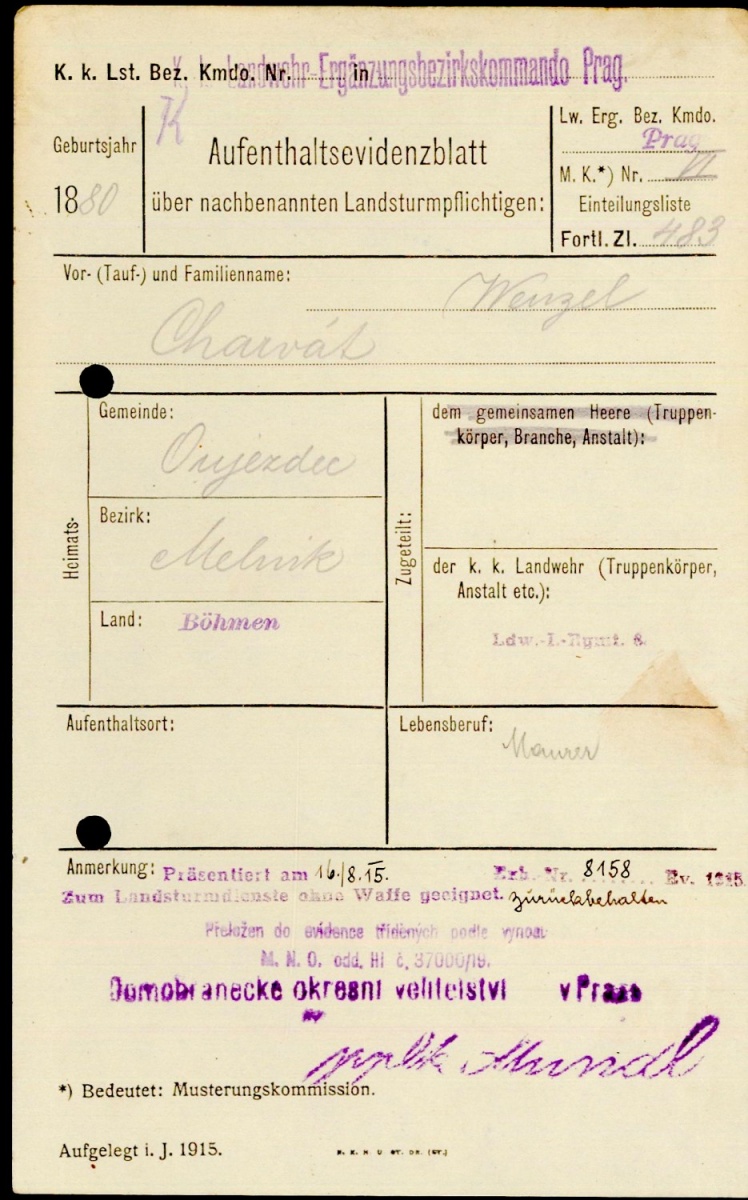 K. k. Lst. Bez. Kmdo. Nr. in
K. k. Landwehr-Ergänzungsbezirkskommando Prag.
K
Geburtsjahr
1880
Aufenthaltsevidenzblatt
über nachbenannten Landsturmpflichtigen:
Lw. Erg. Bez. Kmdo.
Prag
M. K.*) Nr. VI
Einteilungsliste
Fortl. Zl. 483
Vor- (Tauf-) und Familienname:
Wenzel
Charvát
Heimats-
Gemeinde:
Oujezdec
Bezirk:
Melnik
Land: Böhmen
Zugeteilt:
dem gemeinsamen Heere (Truppen-
körper, Branche, Anstalt):
der k. k. Landwehr (Truppenkörper,
Anstalt etc.):
Ldw.-I.-Rgmt. 8
Aufenthaltsort:
Lebensberuf:
Maurer
Anmerkung: Präsentiert am 16./8.15. Erb. Nr. 8158 Ev. 1915.
Zum Landsturmdienste ohne Waffe geeignet. zurückbehalten
Přeložen do evidence tříděných podle vynos.
M. N. O. odd. HI č. 37000/19.
Domobranecké okresní velitelství v Praze
*) Bedeutet: Musterungskommission.
Aufgelegt i. J. 1915.